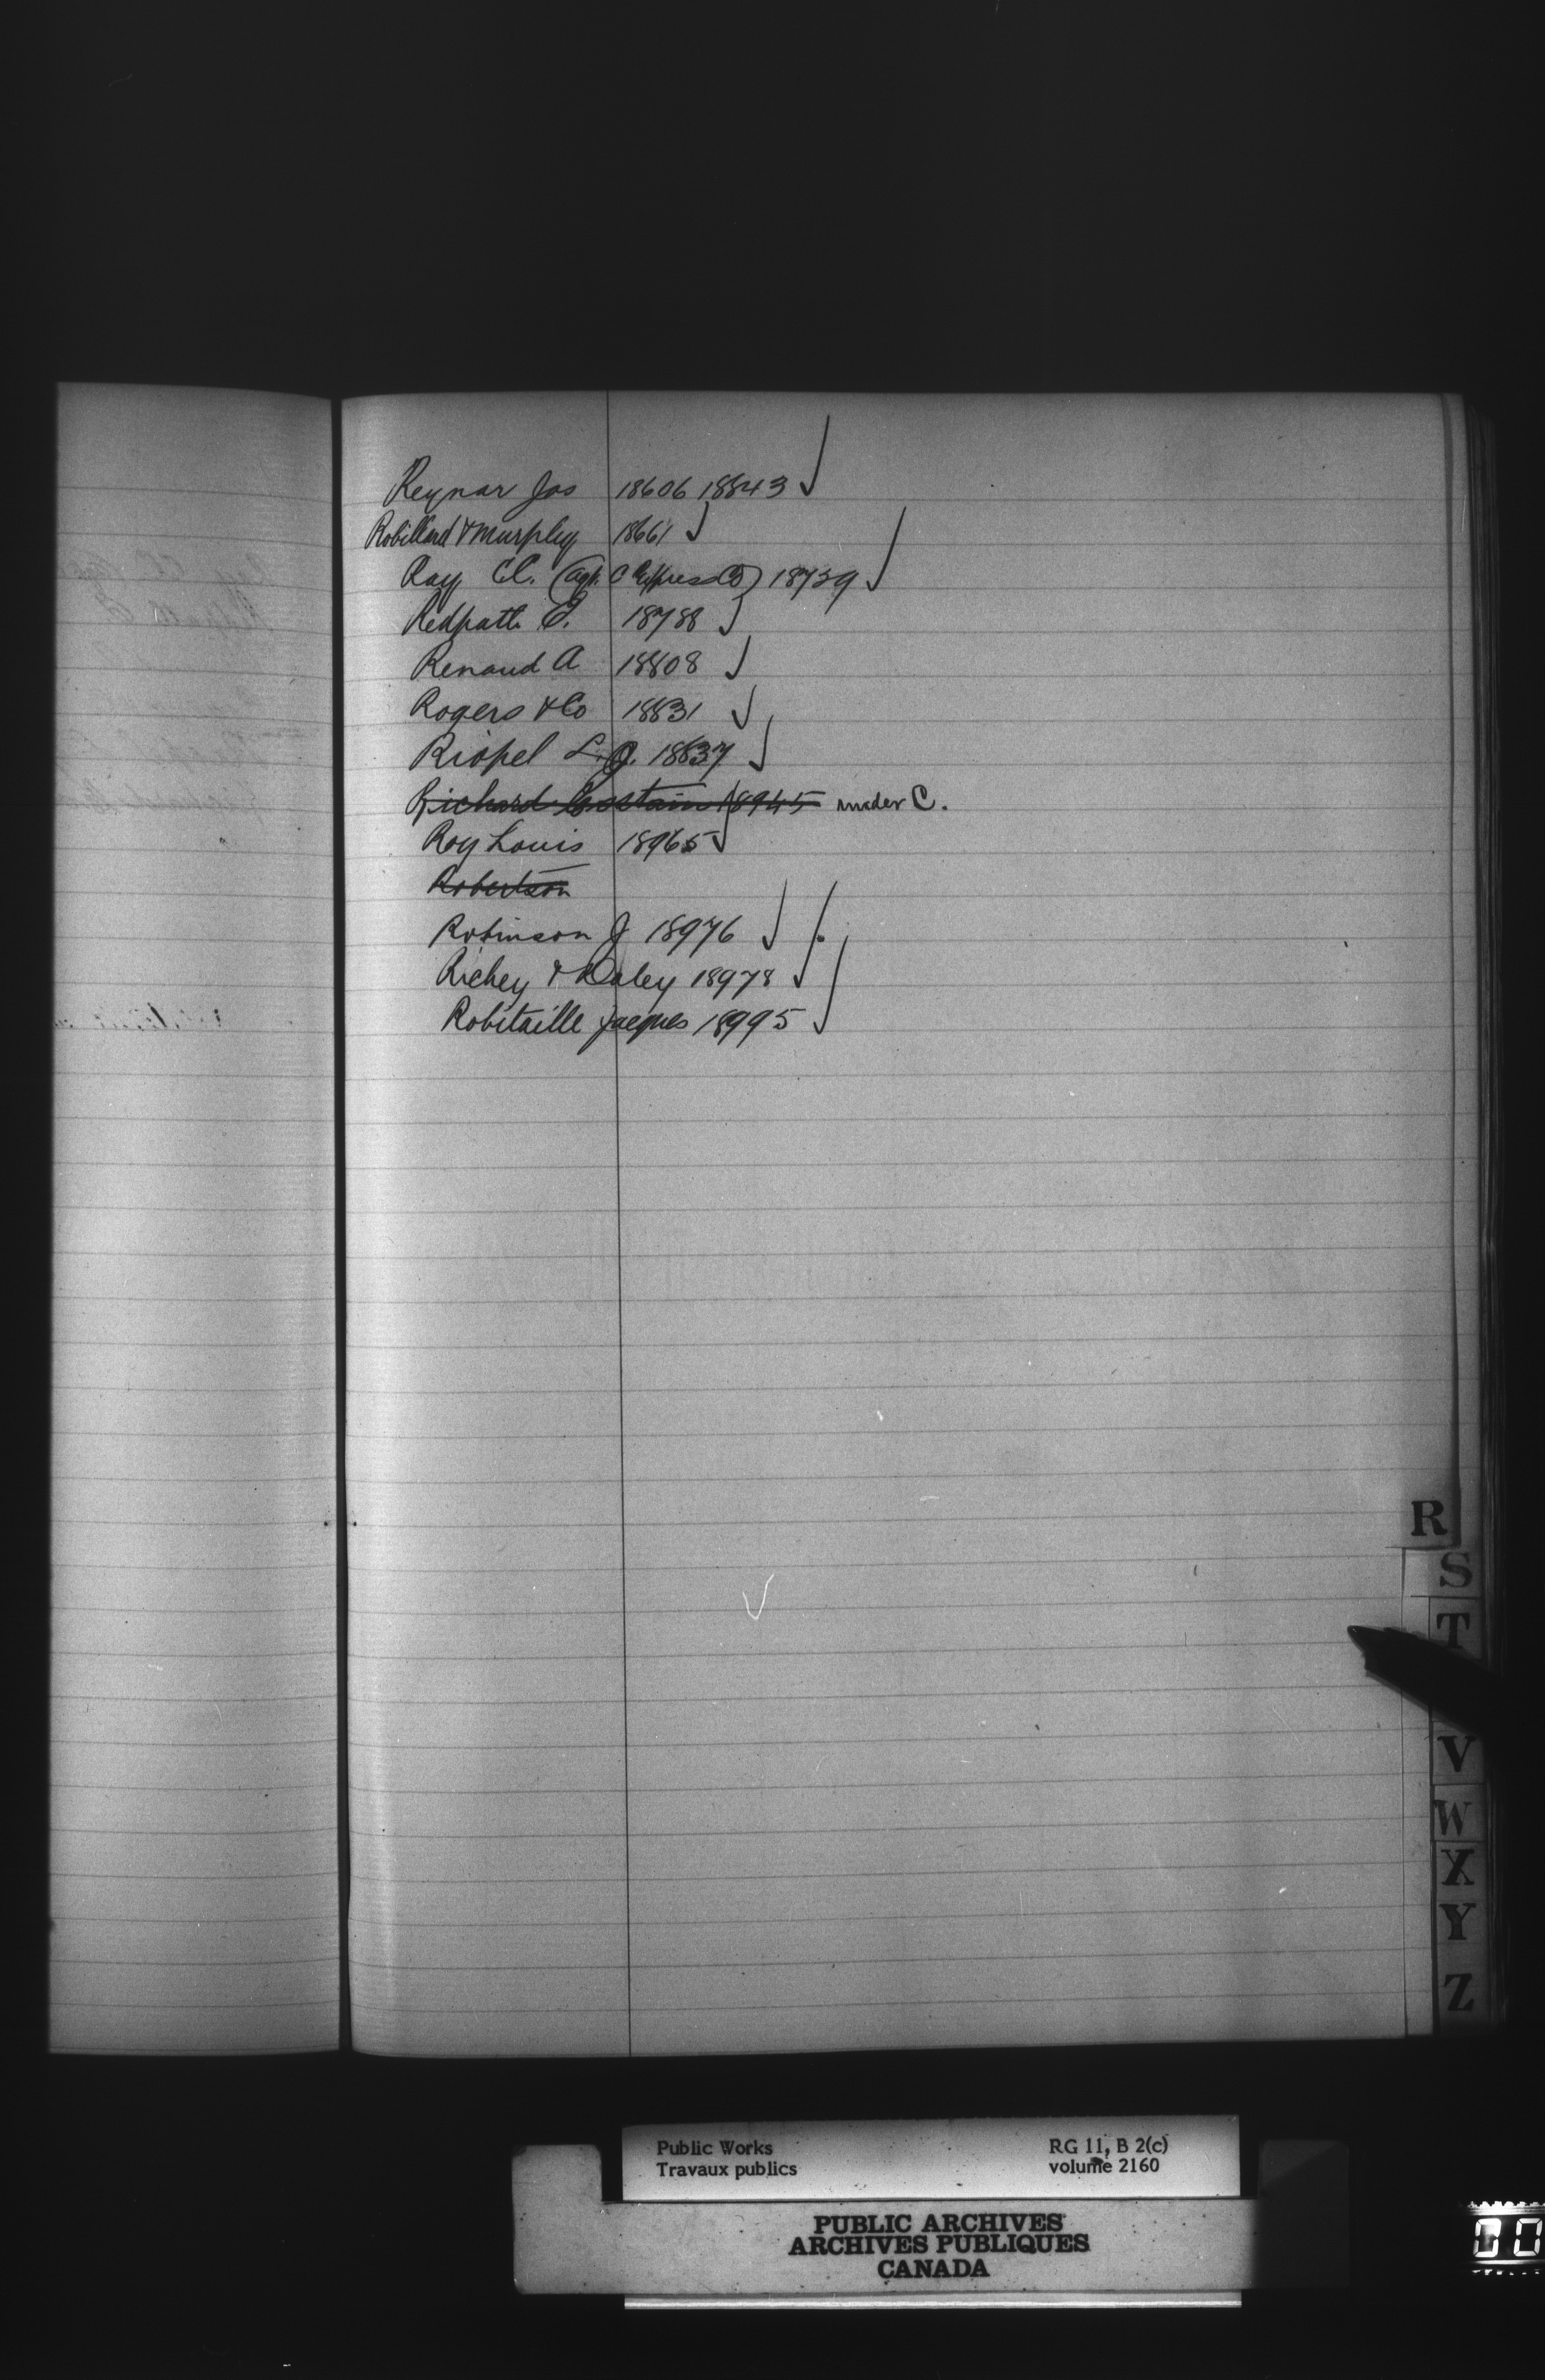 Reynar Jos 18606 18843
Robillard & Murphy 18661
Ray Cl. (Agt. C Express Co) 18739
Redpath E. 18788
Renaud A 18808
Rogers & Co 18831
Riopel L. J. 18837
Richard Costain 18945 under C.
Roy Louis 18965
Robertson
Robinson J 18976
Richey & Daley 18978
Robitaille Jacques 18995
R
S
T
V
W
X
Y
Z
Public Works
Travaux publics
RG 11, B 2(c)
volume 2160
PUBLIC ARCHIVES
ARCHIVES PUBLIQUES
CANADA
00